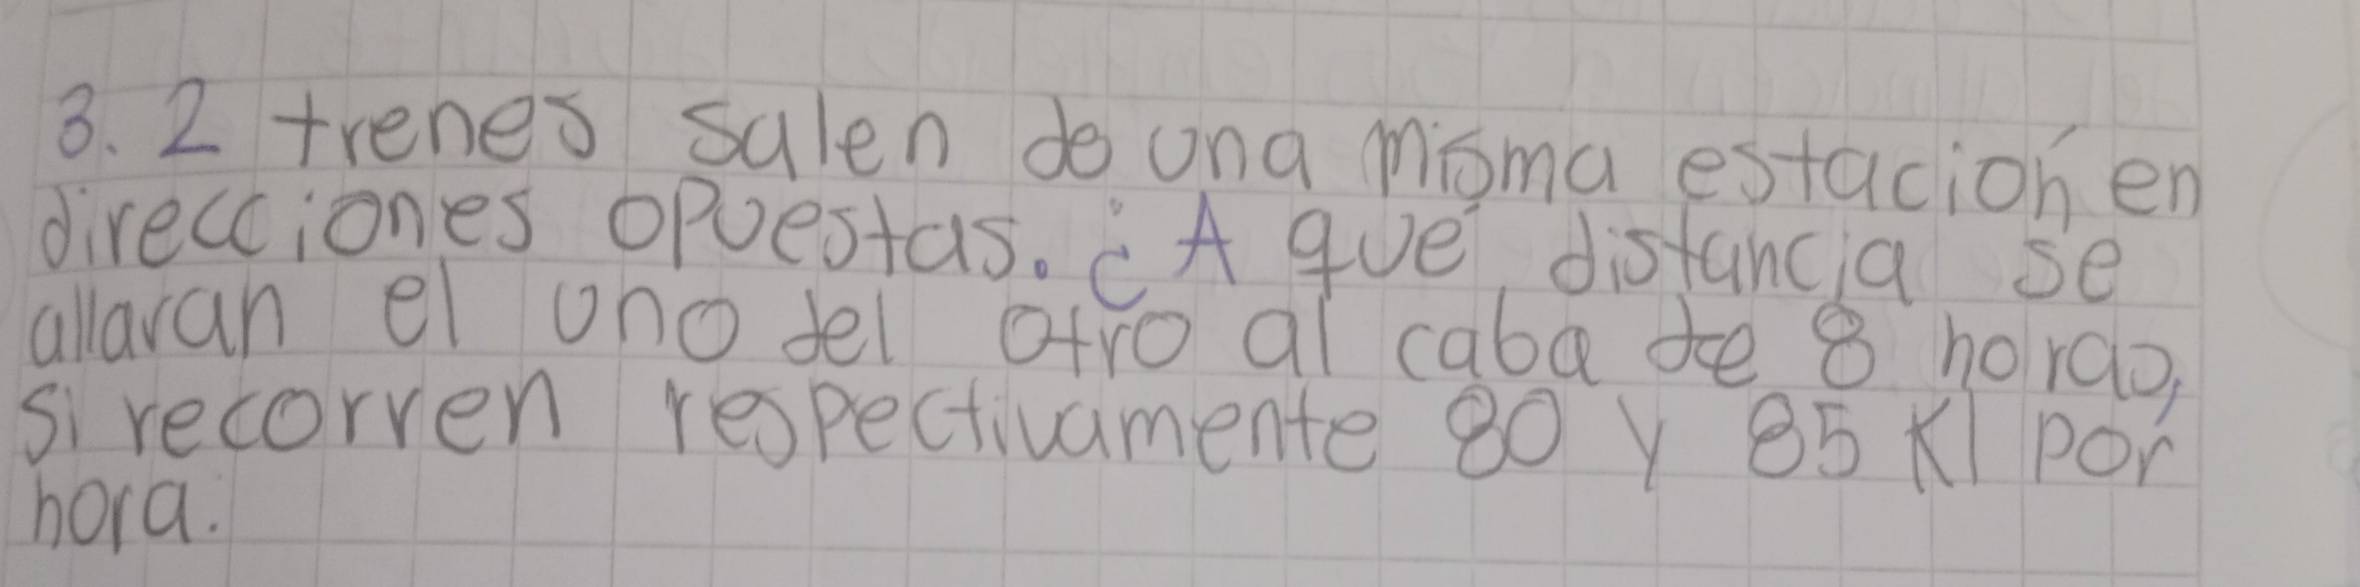 3. 2 trenes salen de una misma estación en
direcciones opuestas. ¿A qué distancia se
allaran el uno del otro al caba de 8 horas,
si recorren respectivamente 80 y 85 Kl por
hora.